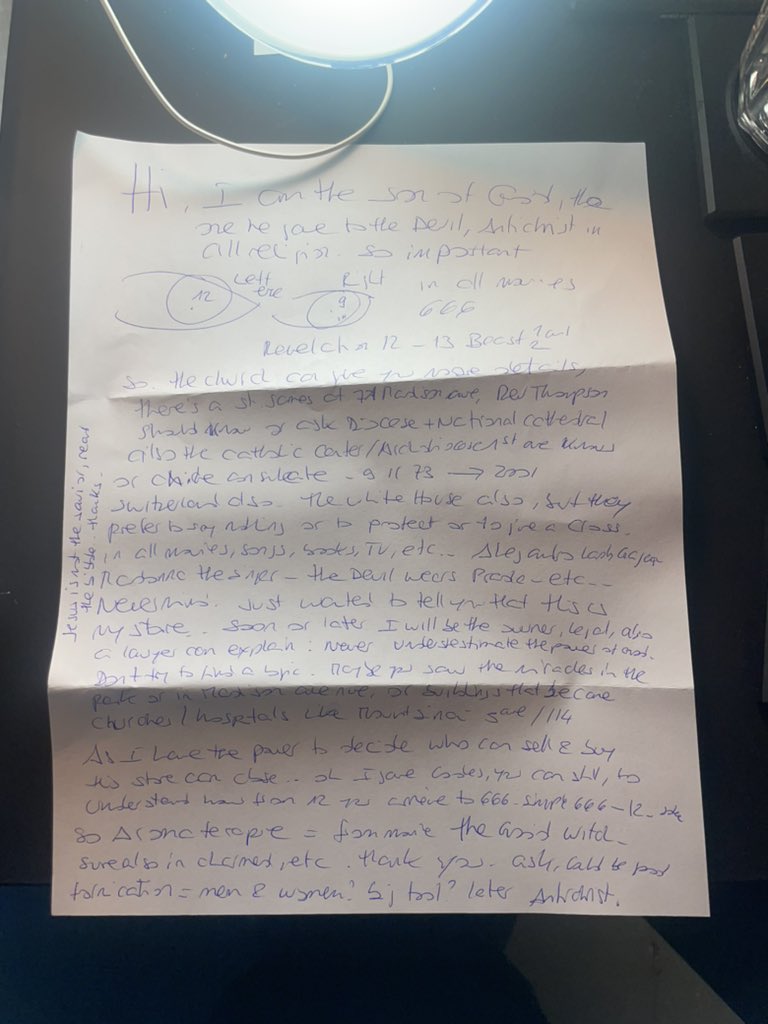 Hi, I am the son of God, the
one he gave to the Devil, Antichrist in
all religion. so important
12 Left eye 9 Right in all movies
666
Revelation 12 - 13 Beast 1 and 2
so the church can give you more details,
there's a St. James at Madison ave, Rev Thompson
should know or ask Diocese + National cathedral
also the catholic center/Archdiocese 1st ave knows
or consulate - 9 11 73 → 2001
Switzerland also. The White House also, but they
prefer to say nothing or to protect or to give a
in all movies, songs, books, TV, etc... Alejandro Lady Gaga
Madonna the singer - the Devil wears Prada - etc...
Nevermind. Just wanted to tell you that this is
my store. Soon or later I will be the owner, legal, also
a lawyer can explain: never understestimate the power of God.
Don't try to find a logic. Maybe you saw the miracles in the
park or in Madison avenue, or buildings that became
churches/hospitals like Mount Sinai 5 ave/114
As I have the power to decide who can sell & buy
this store can close.. I gave codes, you can still, to
understand how from 12 you arrive to 666. simple 666-12
so = from movie the Good witch.
sure also in charmed, etc. thank you. ask, could be good
fornication = men & women? big tool? later Antichrist.
Jesus is not the savior, read
the bible.. thanks.